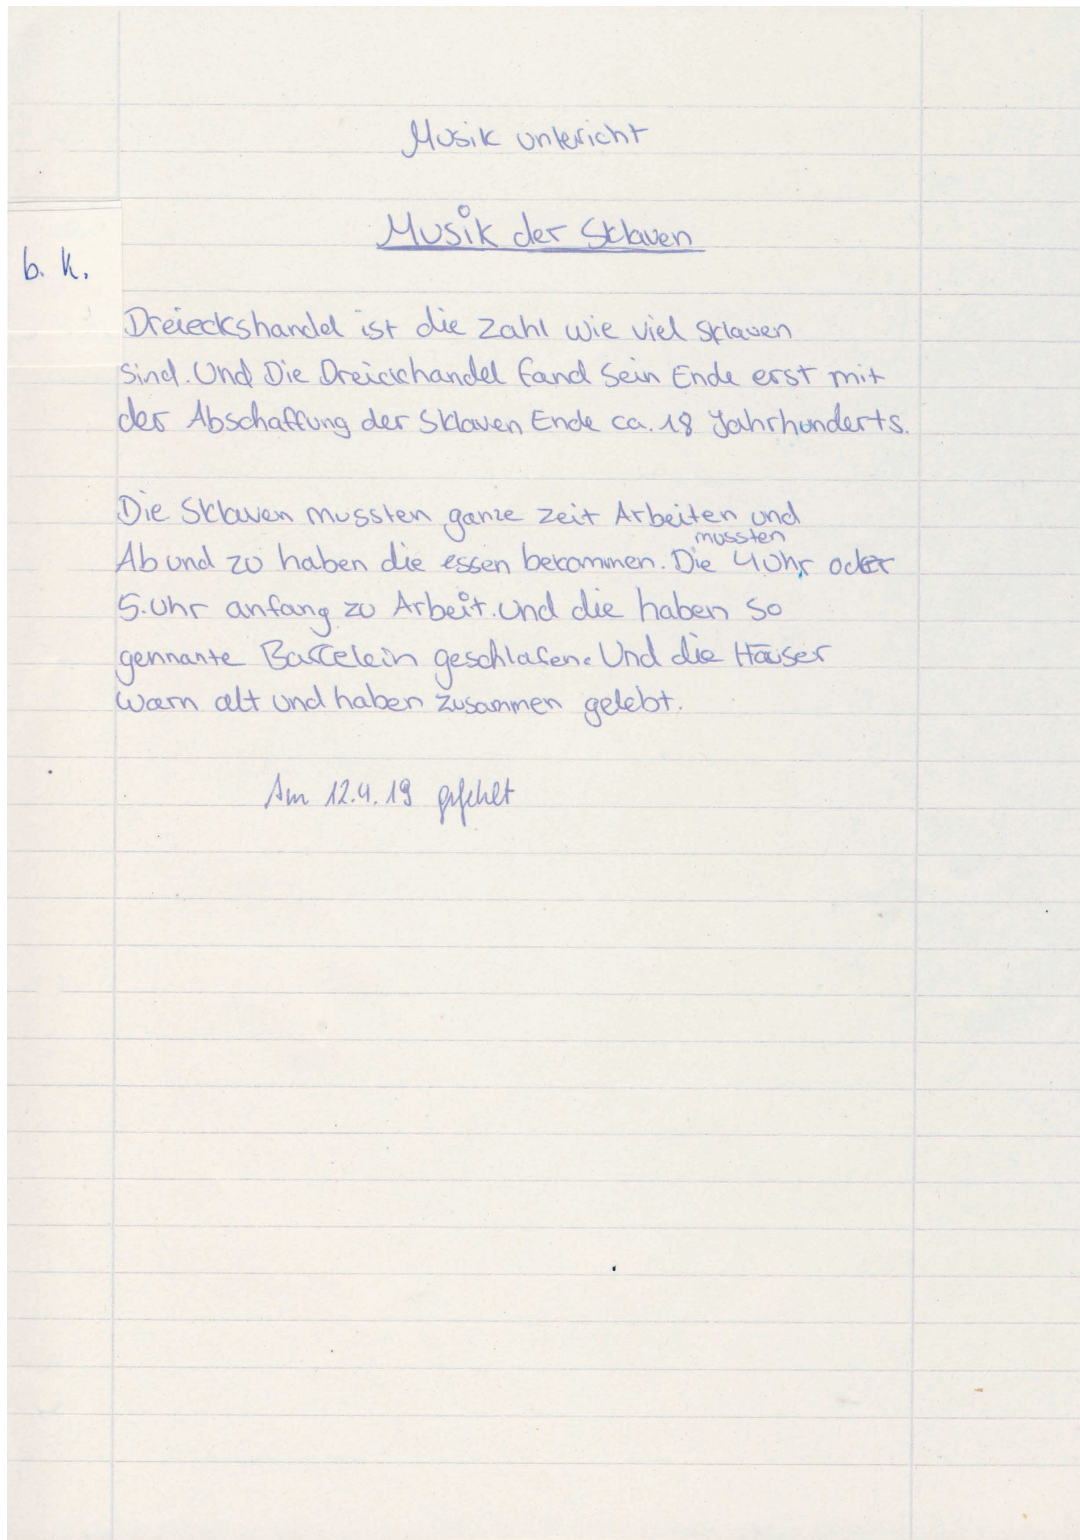 Musik untericht
Musik der Sklaven
b. k.
Dreieckshandel ist die Zahl wie viel Sklaven
sind. Und Die Dreickhandel fand sein Ende erst mit
der Abschaffung der Sklaven Ende ca. 18 Jahrhunderts.
Die Sklaven mussten ganze zeit Arbeiten und
mussten
Ab und zu haben die essen bekommen. Die 4 Uhr oder
5. Uhr anfang zu Arbeit. Und die haben so
gennante geschlafen. Und die Häuser
warn alt und haben zusammen gelebt.
Am 12.4.19 gefehlt